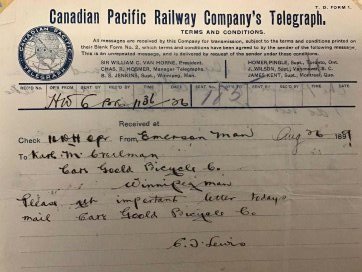 T. D. FORM 1.
Canadian Pacific Railway Company's Telegraph.
TERMS AND CONDITIONS.
All messages are received by this Company for transmission, subject to the terms and conditions printed on their Blank Form No. 2, which terms and conditions have been agreed to by the sender of the following message.
This is an unrepeated message, and is delivered by request of the sender under these conditions.
CANADIAN PACIFIC RAILWAY CO'S TELEGRAPH
SIR WILLIAM C. VAN HORNE, President.
CHAS. R. HOSMER, Manager Telegraphs.
B. S. JENKINS, Supt., Winnipeg, Man.
HOMER PINGLE, Supt., Toronto, Ont.
J. WILSON, Supt., Vancouver, B. C.
JAMES KENT, Supt., Montreal, Que.
REC'D No. SENT BY REC'D BY TIME SENT BY REC'D BY TIME SENT BY REC'D BY TIME CHECK
Received at
Check
From Emerson Man Aug 26 189
To
Care Goold Bicycle Co.
Winnipeg man
Please get important letter todays
mail Care Goold Bicycle Co
Lewis